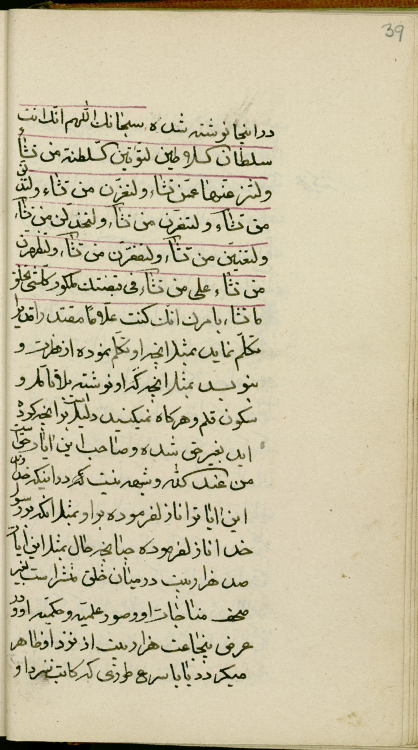 39
در اینجا نوشته شده سبحانک اللهم انک انت
سلطان السلاطین لتؤتین السلطنة من تشاء
ولتنزعنها عمن تشاء ولتعزن من تشاء ولتذلن
من تشاء ولتنصرن من تشاء ولتخذلن من تشاء
ولتغنین من تشاء ولتفقرن من تشاء ولتظهرن
من تشاء علی من تشاء فی قبضتک ملکوت کلشئ تخلق
ما تشاء بامرک انک کنت علاما مقتدرا قدیرا
تکلم نماید بمثل آنچه او تکلم نموده از فطرت و
بنویسد بمثل آنچه که او نوشته بلا تامل و
سکون قلم و هر گاه نمیکنید دلیل است بر آنچه کرده
اید بغیر حق شده و صاحب این ایات حق است
من عند الله و شبهه نیست که در اینکه خداوند
این ایات را نازل فرموده بر او بمثل آنکه بر رسول
خدا نازل فرموده چنانچه حال بمثل این ایات
صد هزار بیت در میان خلق منتشر است بغیر
صحف و مناجات او و صور علمیه و حکمیه او و در
عرض پنج ساعت هزار بیت از نزد او ظاهر
میگردد یا باسرع طوری که کاتب نزد او